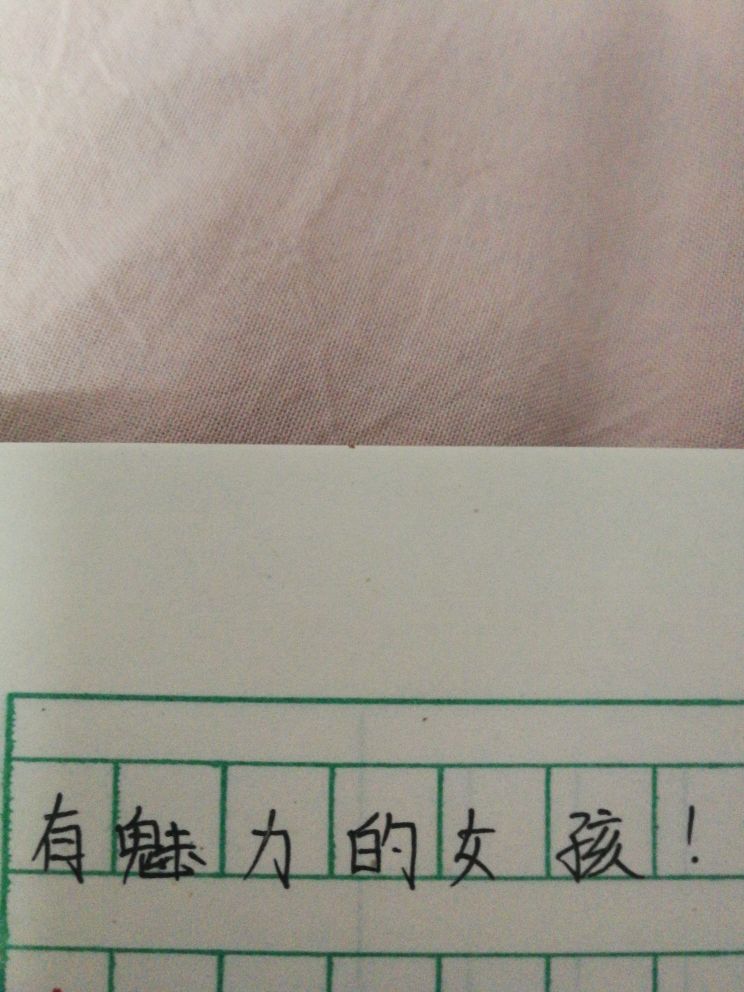 有魅力的女孩！